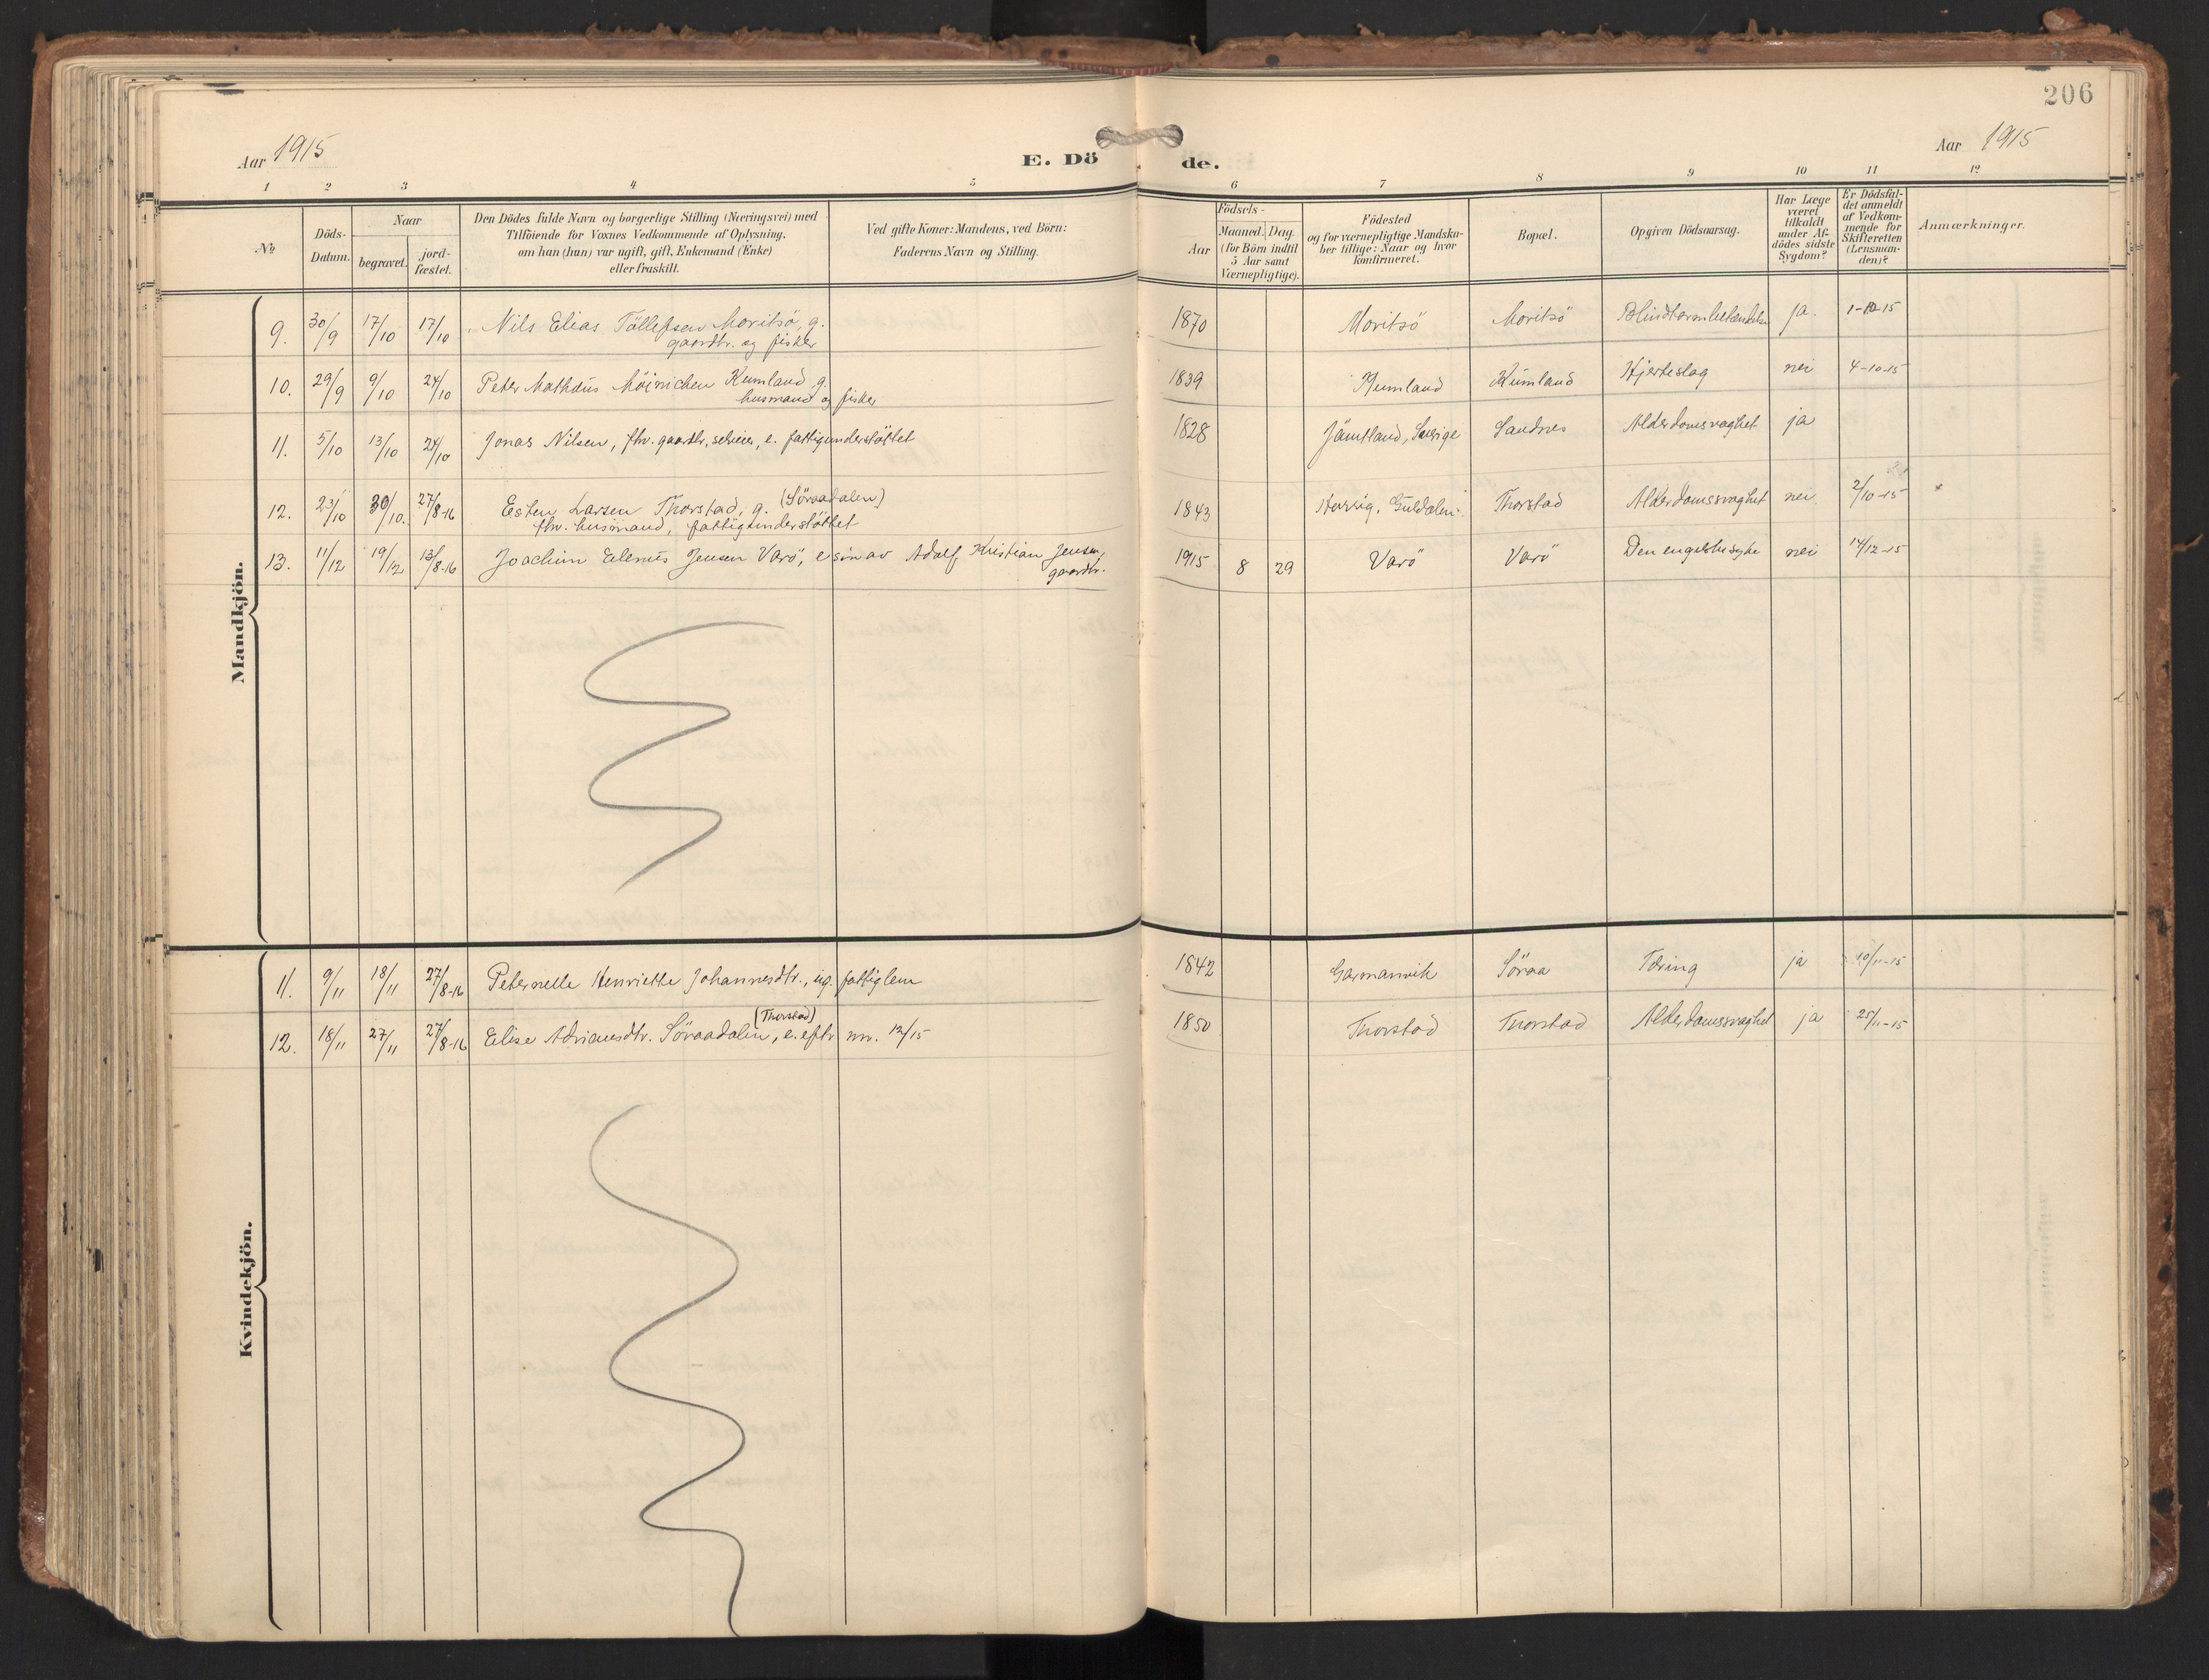 206
Aar 1915
E. Dö de.
Aar 1915
1 2 3 4 5 6 7 8 9 10 11 12
No
Döds-
Datum.
Naar
begravet.
jord-
fæstet.
Den Dödes fulde Navn og borgerlige Stilling (Næringsvei) med
Tilföiende for Voxnes Vedkommende af Oplysning,
om han (hun) var ugift, gift, Enkemand (Enke)
eller fraskilt.
Ved gifte Koner: Mandens, ved Börn:
Faderens Navn og Stilling.
Födsels-
Aar
Maaned. Dag.
(for Börn indtil
5 Aar samt
Værnepligtige).
Födested
og for værnepligtige Mandska-
ber tillige: Naar og hvor
konfirmeret.
Bopæl.
Opgiven Dödsaarsag.
Har Læge
været
tilkaldt
under Af-
dödes sidste
Sygdom?
Er Dödsfal-
det anmeldt
af Vedkom-
mende for
Skifteretten
(Lensman-
den)?
Anmærkninger.
Mandkjön.
9. 30/9 17/10 17/10 Nils Elias Töllefsen Moritsö, g. 1870 Moritsö Moritsö Blindtarmbetændelse ja. 1-10-15
gaardbr. og fisker
10. 29/9 9/10 24/10 Peter Mathæus Möinichen Kumland, g. 1839 Kumland Kumland Hjerteslag nei 4-10-15
husmand og fisker
11. 5/10 13/10 24/10 Jonas Nilsen, fhv. gaardbr, selveier, e. fattigunderstöttet 1828 Jämtland, Sverige Sandnes Alderdomsvaghet ja
12. 23/10 30/10. 27/8-16 Esten Larsen Thorstad, g. (Söraadalen) 1843 Guldalen Thorstad Alderdomssvaghet nei 2/10-15
fhv. husmand, fattigunderstöttet
13. 11/12 19/12 13/8-16 Joachim Edenus Jensen Varö, e sön av Adolf Kristian Jensen, 1915 8 29 Varö Varö Den engelske syke nei 14/12-15
gaardbr.
Kvindekjön.
11. 9/11 18/11 27/8-16 Peternelle Henriette Johannesdtr., ug. fattiglem 1842 Garmanvik Söraa Tæring ja 10/11-15
12. 18/11 27/11 27/8-16 Elise Adriansdtr. Söraadalen, (Thorstad) e. eftr nr. 12/15 1850 Thorstad Thorstad Alderdomssvaghet ja 25/11-15